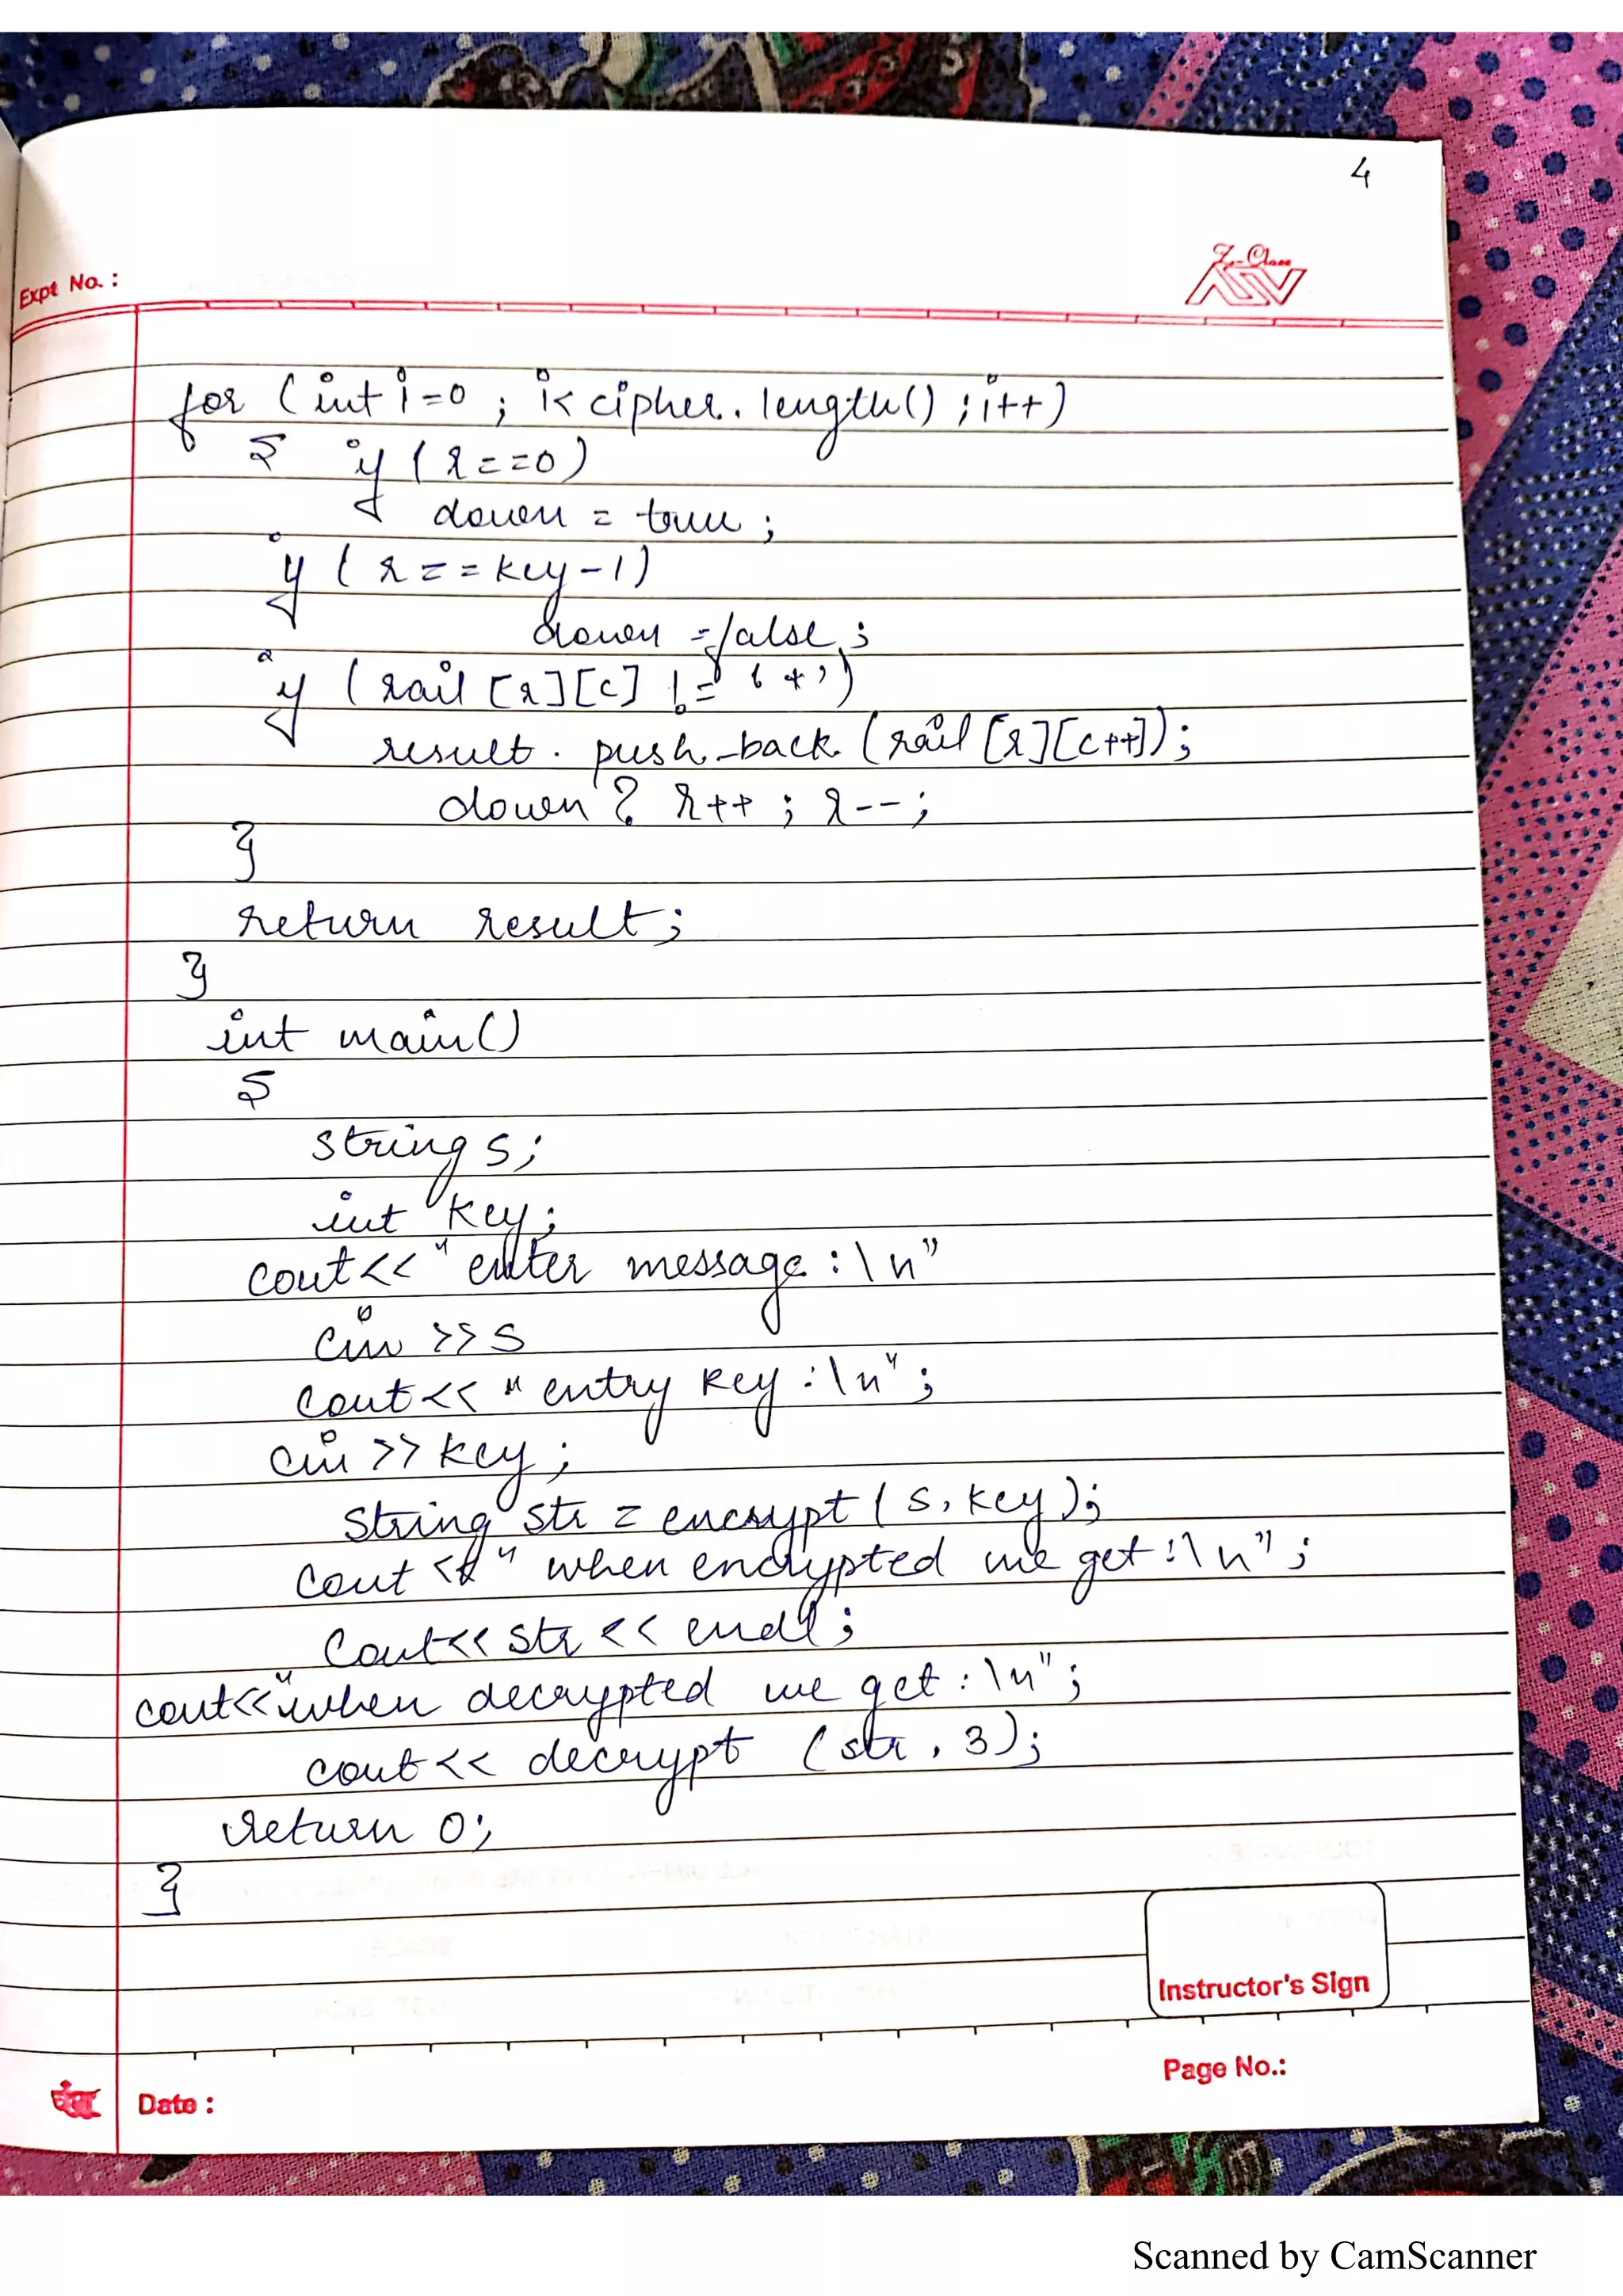 4
Expt No. :
for (int i=0 ; i< cipher. length() ; i++)
{ if (r==0)
down = true ;
if ( r == key-1)
down = false ;
if ( rail [r][c] != '*')
result . push_back (rail [r][c++]);
down ? r++ ; r-- ;
}
return result ;
}
int main()
{
string s;
int key;
cout<< " enter message : \n"
cin >> s
cout<< " entry key : \n" ;
cin >> key ;
string str = encrypt ( s, key );
cout << " when encrypted we get : \n" ;
cout<< str << endl ;
cout<<"when decrypted we get : \n" ;
cout<< decrypt (str , 3);
return 0;
}
Instructor's Sign
Page No.:
Date :
Scanned by CamScanner